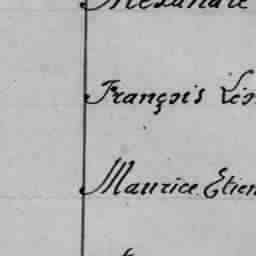 François Léo
Maurice Etien